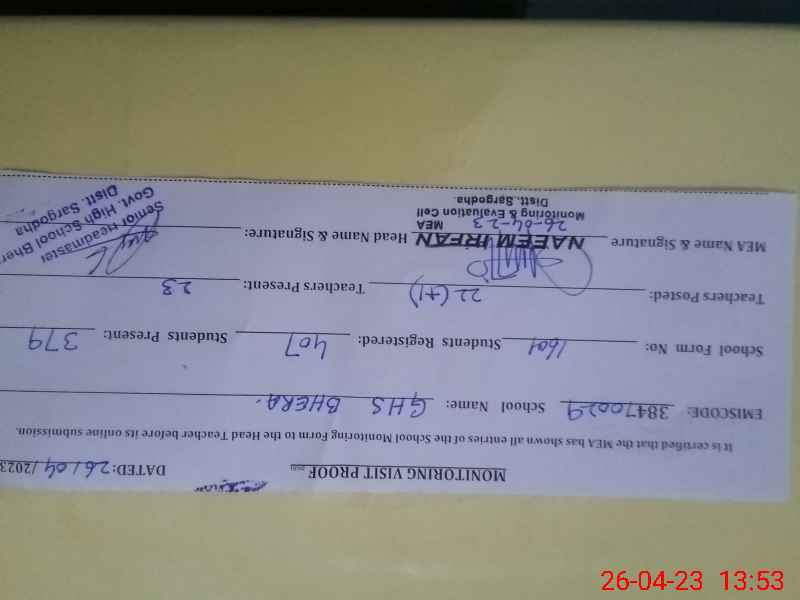 MONITORING VISIT PROOF
DATED: 26/04/2023
It is certified that the MEA has shown all entries of the School Monitoring Form to the Head Teacher before its online submission.
EMISCODE: 38470029 School Name: GHS BHERA.
School Form No: 1604 Students Registered: 407 Students Present: 379
Teachers Posted: 22(+1) Teachers Present: 23
MEA Name & Signature NAEEM IRFAN Head Name & Signature:
26-04-23
MEA
Monitoring & Evaluation Cell
Distt. Sargodha.
Senior Headmaster
Govt. High School Bher
Distt. Sargodha
26-04-23 13:53